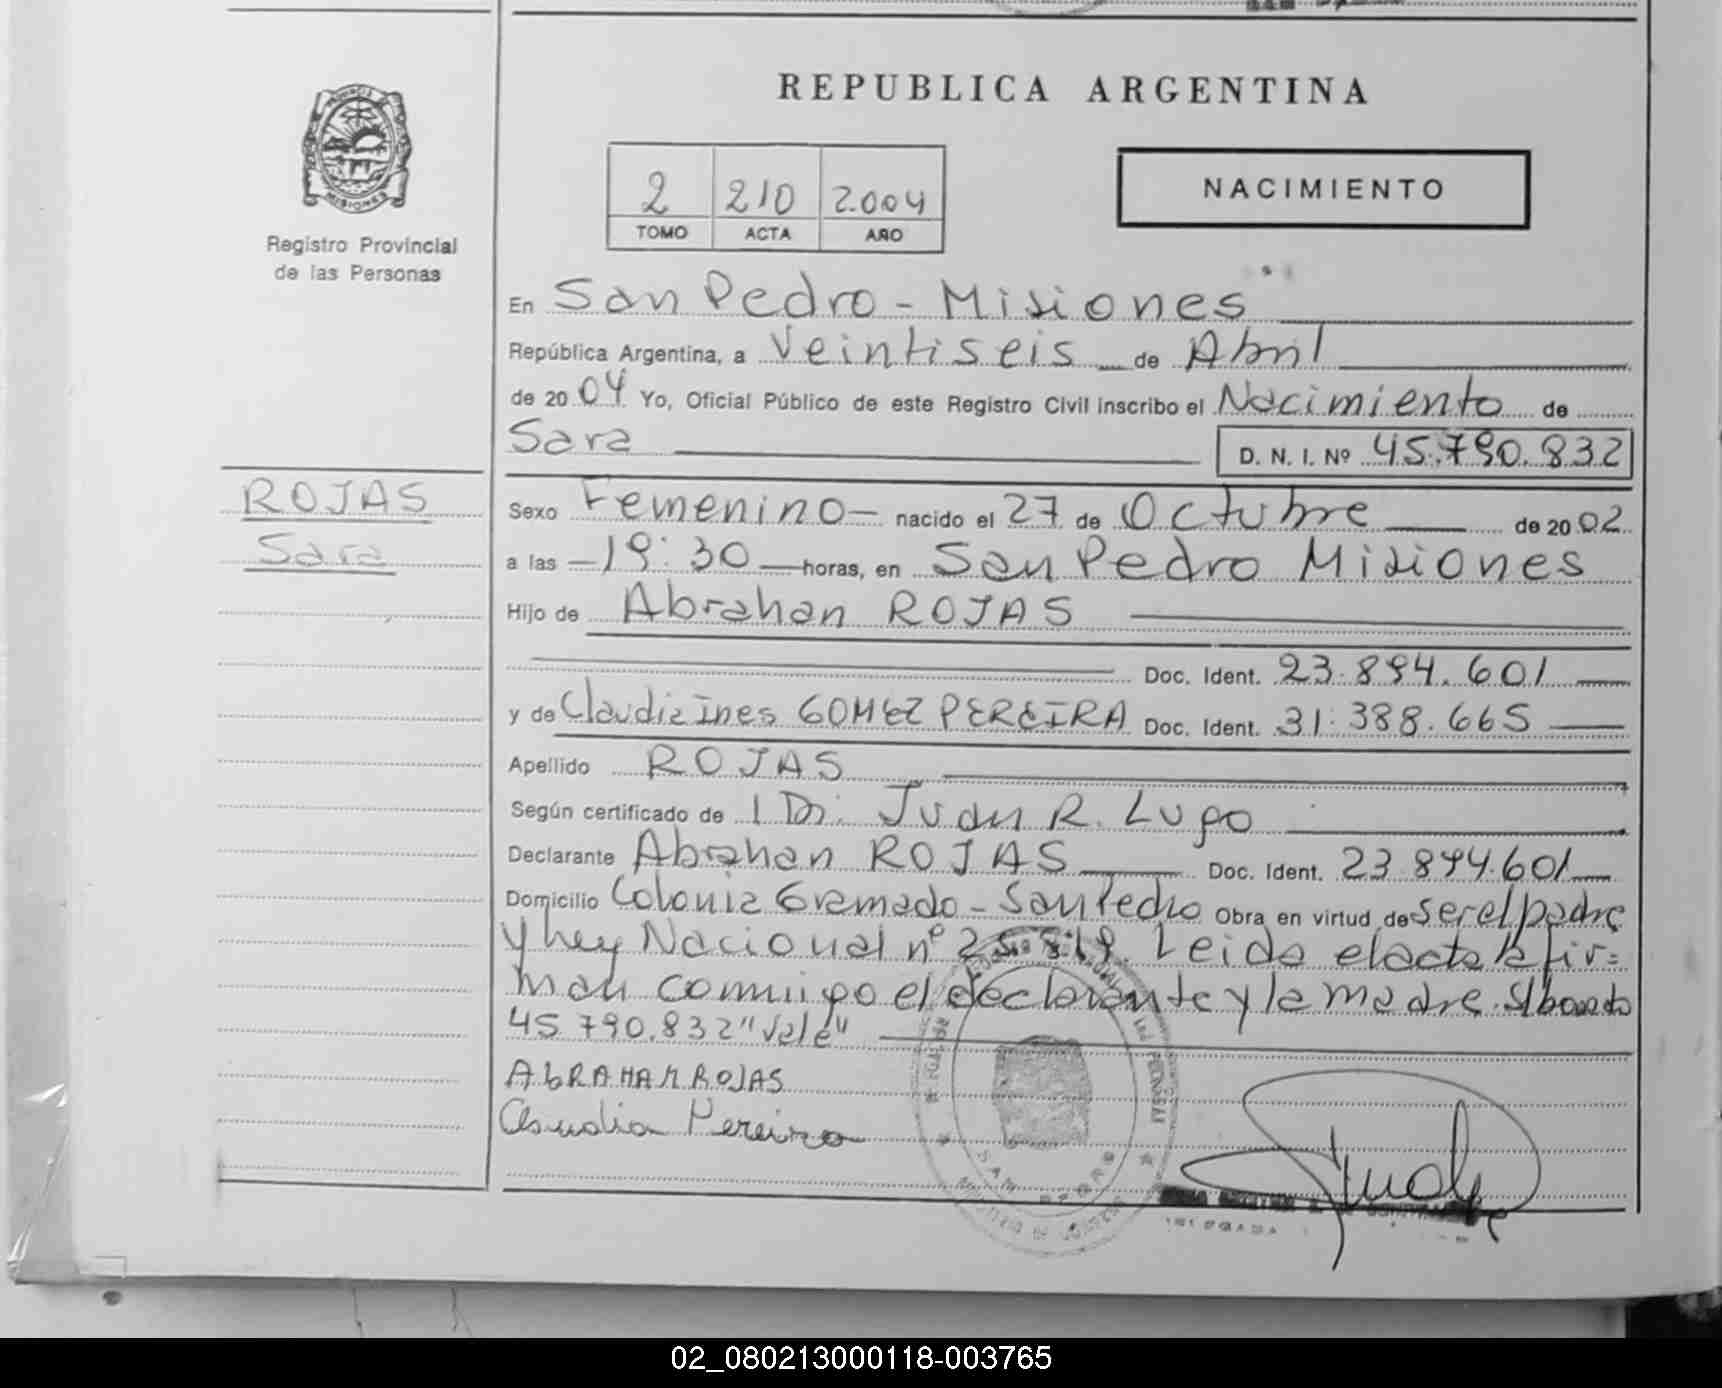 REPUBLICA ARGENTINA
PROVINCIA DE
MISIONES
Registro Provincial
de las Personas
2 210 2.004
TOMO ACTA AÑO
NACIMIENTO
En San Pedro - Misiones
República Argentina, a Veintiseis de Abril
de 2004 Yo, Oficial Público de este Registro Civil inscribo el Nacimiento de
Sara D. N. I. Nº 45.790.832
ROJAS
Sara
Sexo Femenino - nacido el 27 de Octubre de 2002
a las 19:30 horas, en San Pedro Misiones
Hijo de Abrahan ROJAS
Doc. Ident. 23.894.601
y de Claudia Ines GOMEZ PEREIRA Doc. Ident. 31.388.665
Apellido ROJAS
Según certificado de Juan R. Lugo
Declarante Abrahan ROJAS Doc. Ident. 23.894.601
Domicilio Colonia Gramado - San Pedro Obra en virtud de ser el padre
y Ley Nacional nº 25.819. Leida el acta la fir=
man conmigo el declarante y la madre. S/borrado
45.790.832 "Vale"
ABRAHAN ROJAS
Claudia Pereira
SAN PEDRO
02_080213000118-003765